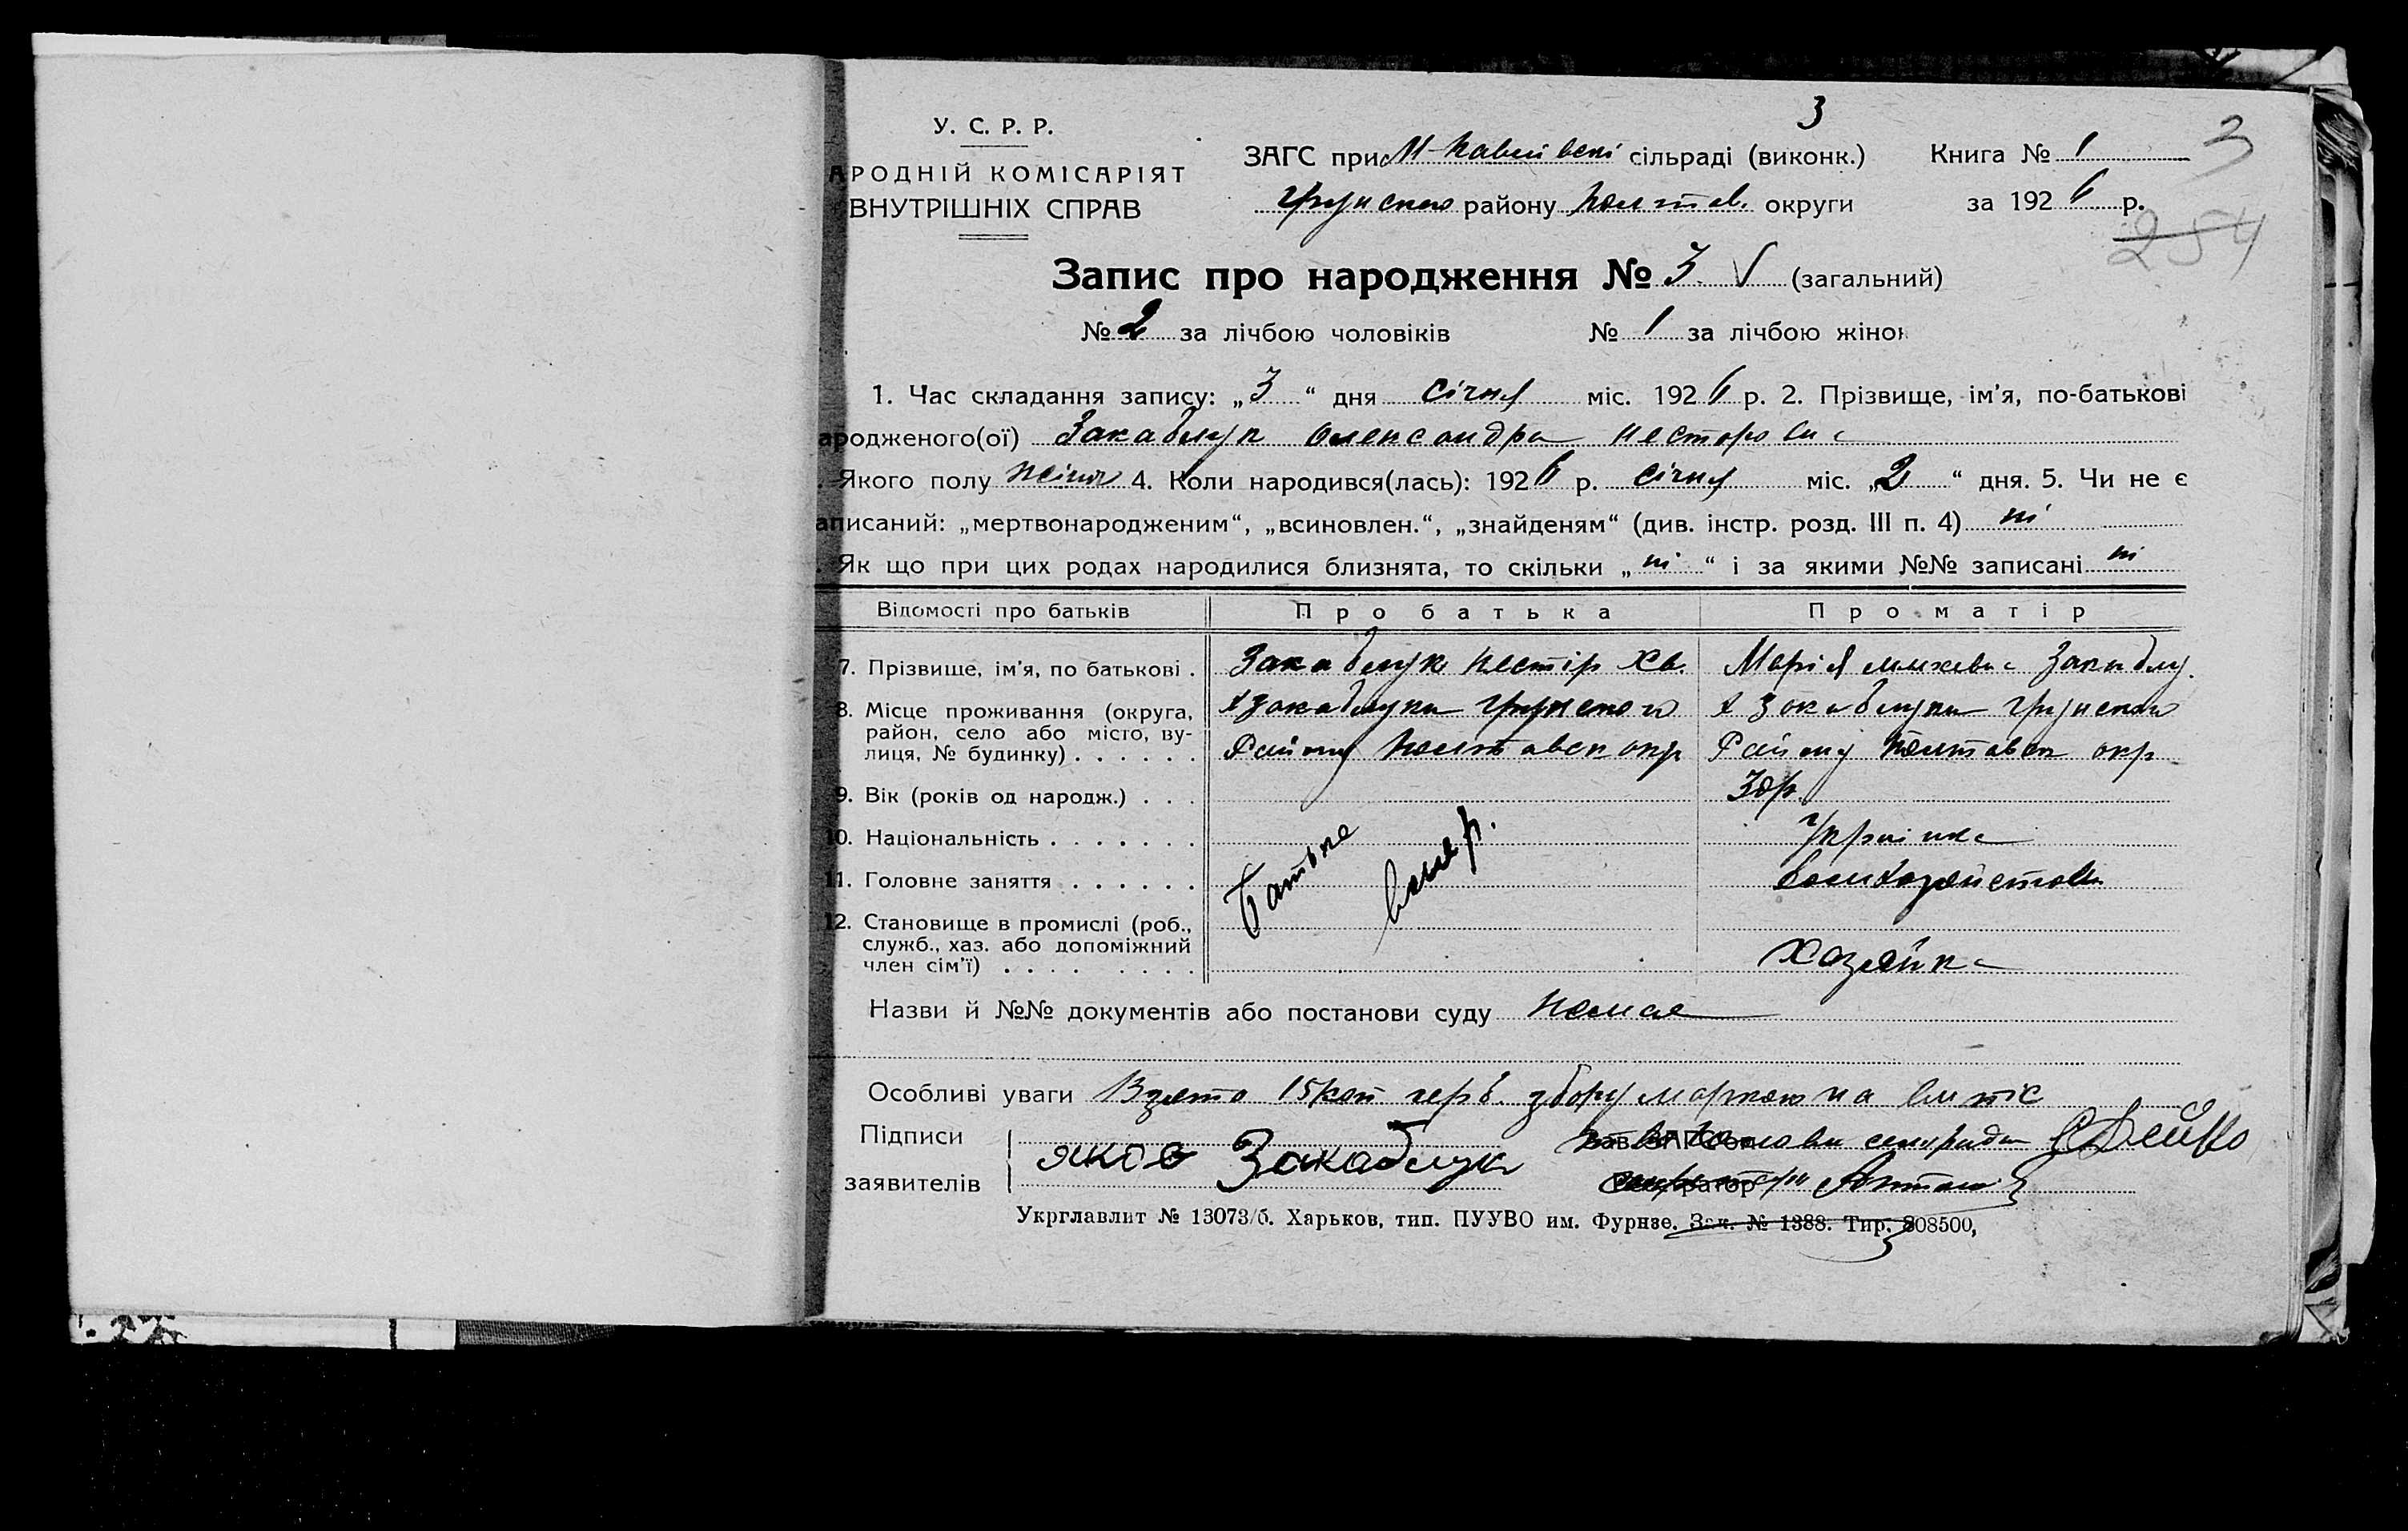 3
У. С. Р. Р.
АРОДНІЙ КОМІСАРІЯТ
ВНУТРІШНІХ СПРАВ
ЗАГС при сільраді (виконк.)
Грунского району Полтав. округи
Книга № 1
3
за 1926 р.
254
Запис про народження № 3 (загальний)
№ 2 за лічбою чоловіків № 1 за лічбою жінок
1. Час складання запису: „3“ дня січня міс. 1926 р. 2. Прізвище, ім’я, по-батькові
ародженого(ої) Закаблук Олександра Несторовна
Якого полу жіноч 4. Коли народився(лась): 1926 р. січня міс. „2“ дня. 5. Чи не є
аписаний: „мертвонародженим“, „всиновлен.“, „знайденям“ (див. інстр. розд. III п. 4) ні
Як що при цих родах народилися близнята, то скільки „ні“ і за якими №№ записані ні
Відомості про батьків Про батька Про матір
7. Прізвище, ім’я, по батькові . Закаблук Нестір Хв. Марія Закаблу.
8. Місце проживання (округа, район, село або місто, вулиця, № будинку) . . . . . .
х Закаблуки Грунского
Району Полтавск окр
х Закаблуки Грунского
Району Полтавск окр
9. Вік (років од народж.) . . . 38р.
10. Національність . . . . . . . Українка
11. Головне заняття . . . . . .
Батько вмер.
12. Становище в промислі (роб., служб., хаз. або допоміжний член сім’ї) . . . . . . . . . Хазяйка
Назви й №№ документів або постанови суду Немае
Особливі уваги Взято 15 коп герб. збору маркою на витіс
Підписи
заявителів
Яков Закаблук
Зав. ЗАГСом голови сельради
Реєстратор
Укрглавлит № 13073/б. Харьков, тип. ПУУВО им. Фрунзе. Зак. № 1388. Тир. 808500,